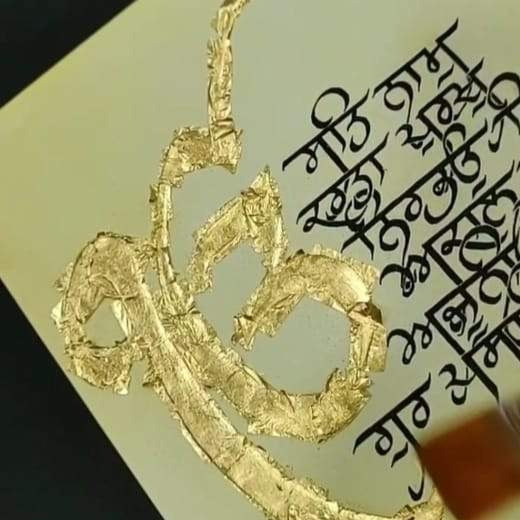 ੴ
ਸਤਿ ਨਾਮੁ
ਕਰਤਾ ਪੁਰਖੁ
ਨਿਰਭਉ
ਅਕਾਲ
ਅਜੂਨੀ
ਗੁਰ